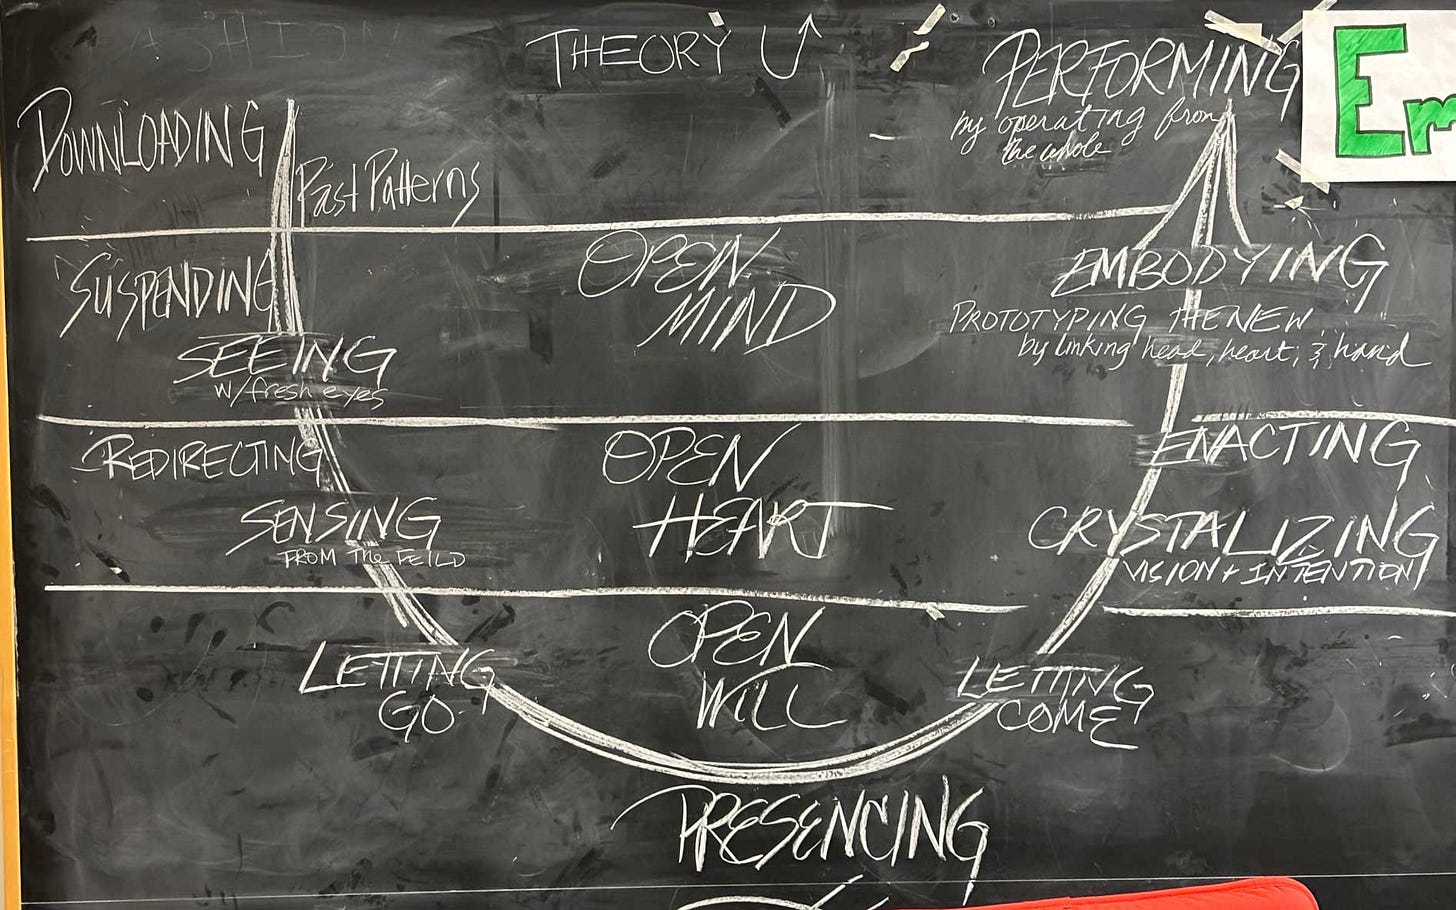 THEORY U
DOWNLOADING
Past Patterns
PERFORMING
by operating from
the whole
Em
SUSPENDING
OPEN
MIND
EMBODYING
PROTOTYPING THE NEW
by linking head, heart, & hand
SEEING
w/fresh eyes
REDIRECTING
OPEN
HEART
ENACTING
SENSING
FROM The FEILD
CRYSTALIZING
VISION + INTENTION
LETTING
GO
OPEN
WILL
LETTING
COME
PRESENCING